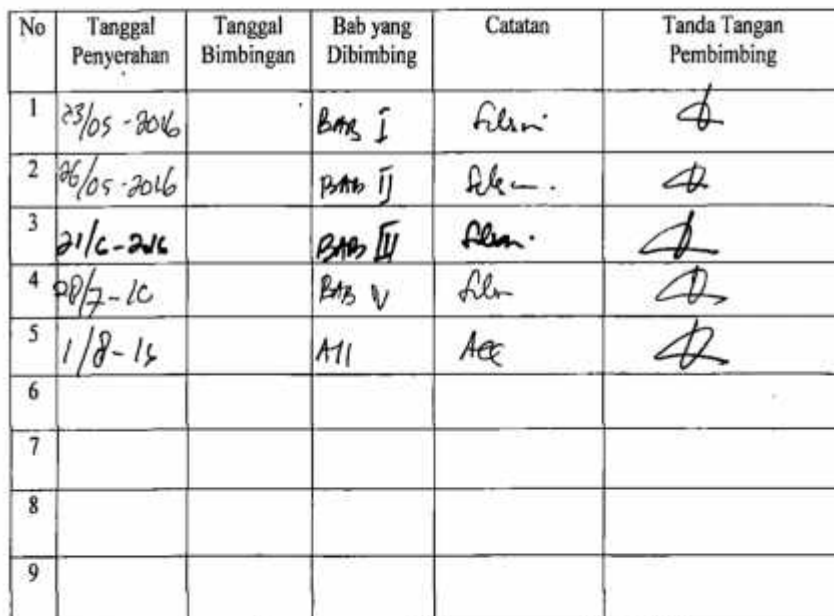 No Tanggal Penyerahan Tanggal Bimbingan Bab yang Dibimbing Catatan Tanda Tangan Pembimbing
1 23/05-2016 BAB I
2 26/05-2016 BAB II
3 21/6-2016 BAB III
4 BAB V
5 1/8-16 All Acc
6
7
8
9